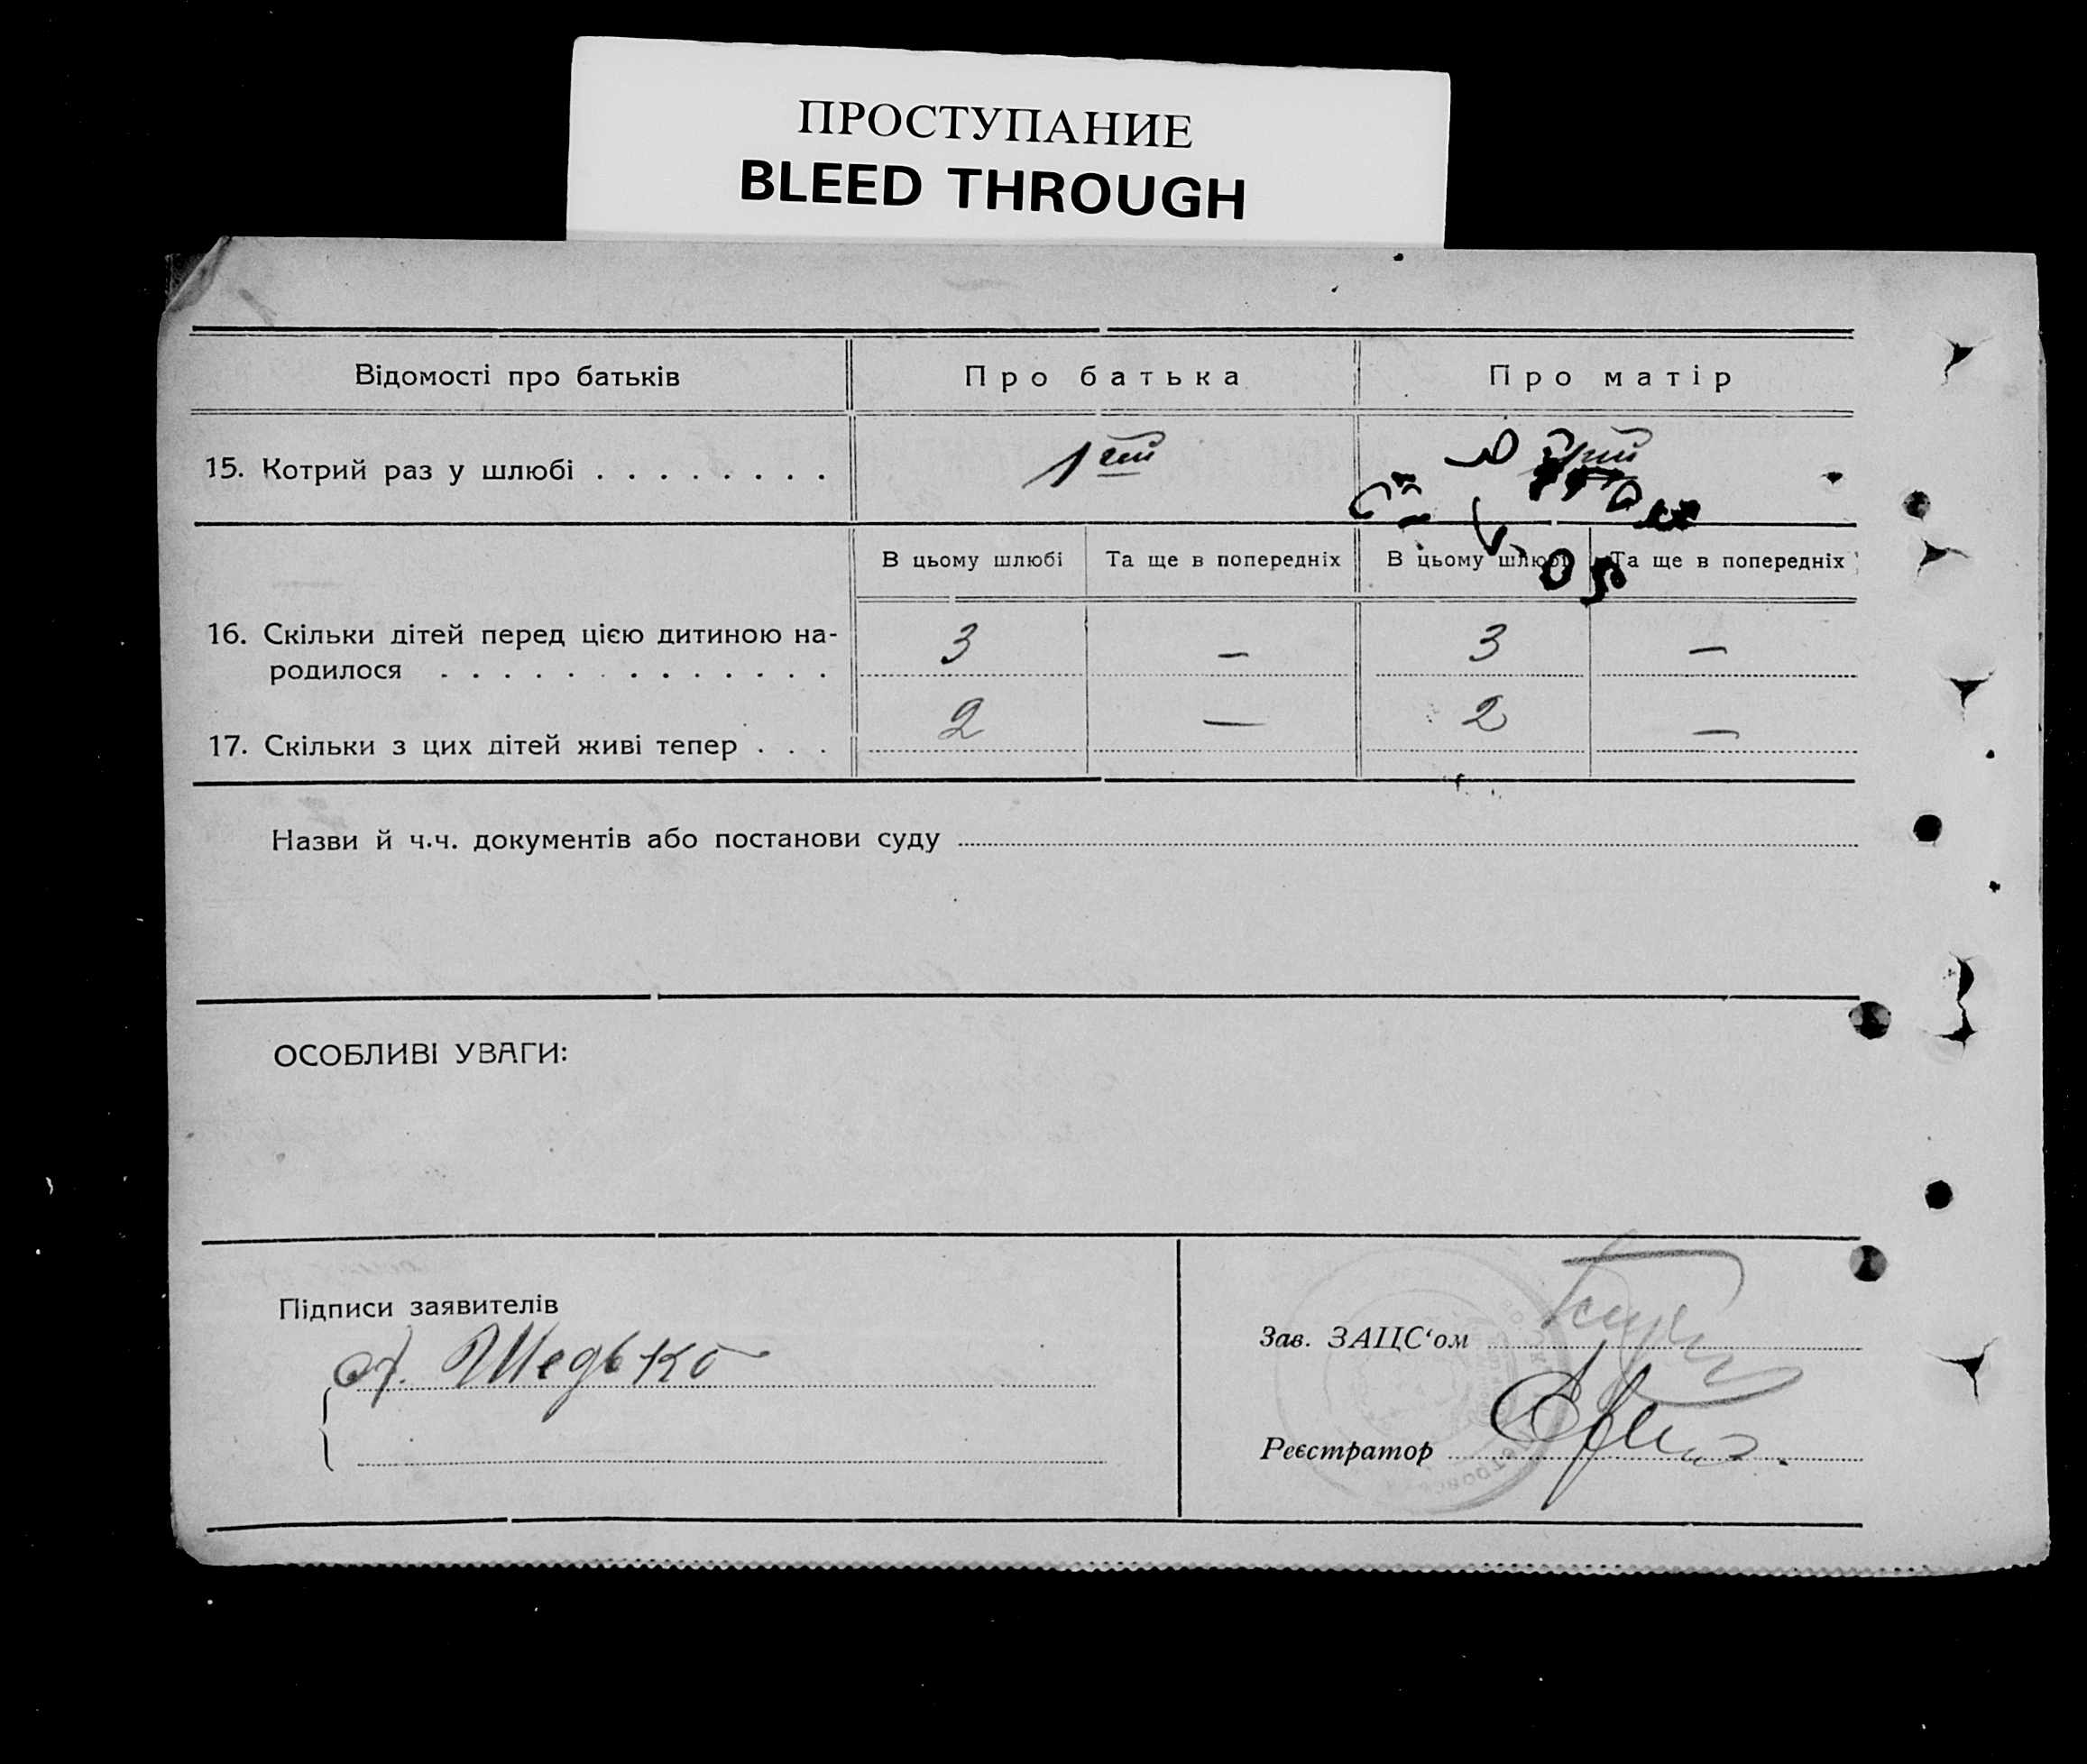 ПРОСТУПАНИЕ
BLEED THROUGH
Відомості про батьків
Про батька
Про матір
15. Котрий раз у шлюбі . . . . . . . .
1ший
В цьому шлюбі
Та ще в попередніх
В цьому шлюбі
Та ще в попередніх
16. Скільки дітей перед цією дитиною на-
родилося . . . . . . . . . . . . .
3 — 3 —
17. Скільки з цих дітей живі тепер . . .
2 — 2 —
Назви й ч.ч. документів або постанови суду
ОСОБЛИВІ УВАГИ:
Підписи заявителів
Шедько
Зав. ЗАЦС‘ом
Реєстратор